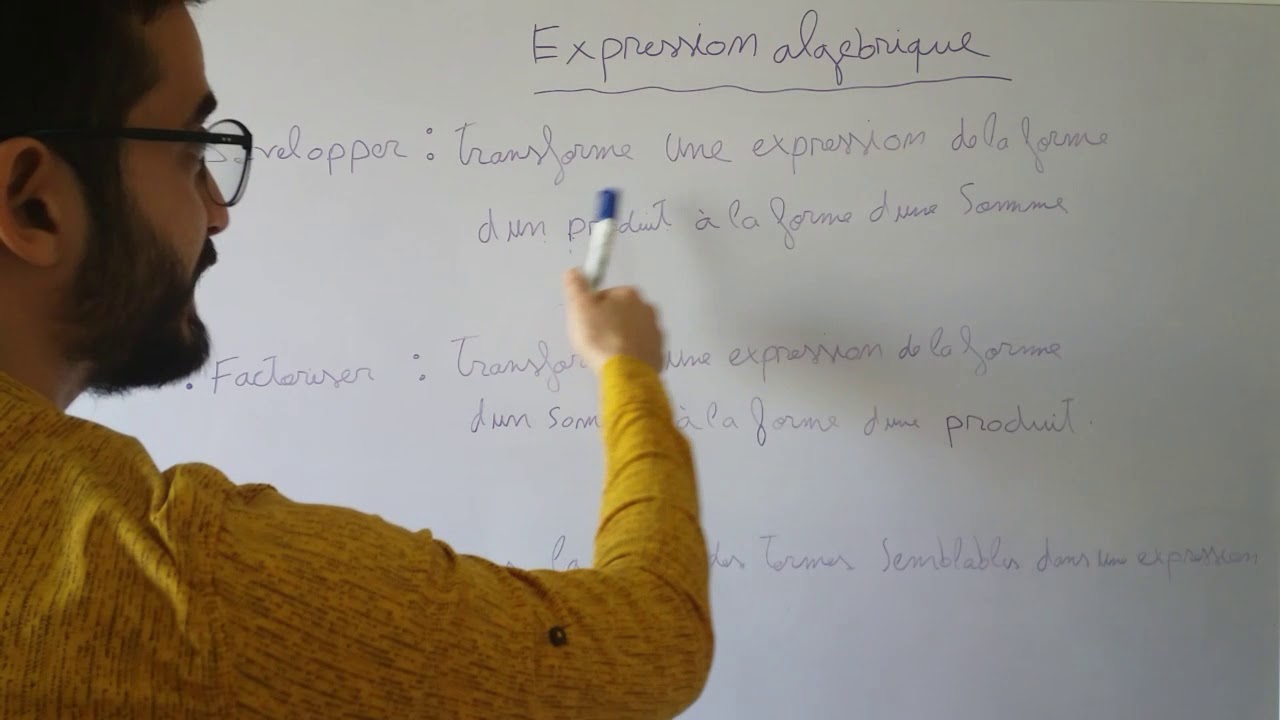 Expression algebrique
Developper : Transforme une expression de la forme
d'un produit à la forme d'une Somme
. Factoriser : Transfor une expression de la forme
d'un Som à la forme d'une produit.
la des Termes Semblables dans une expression